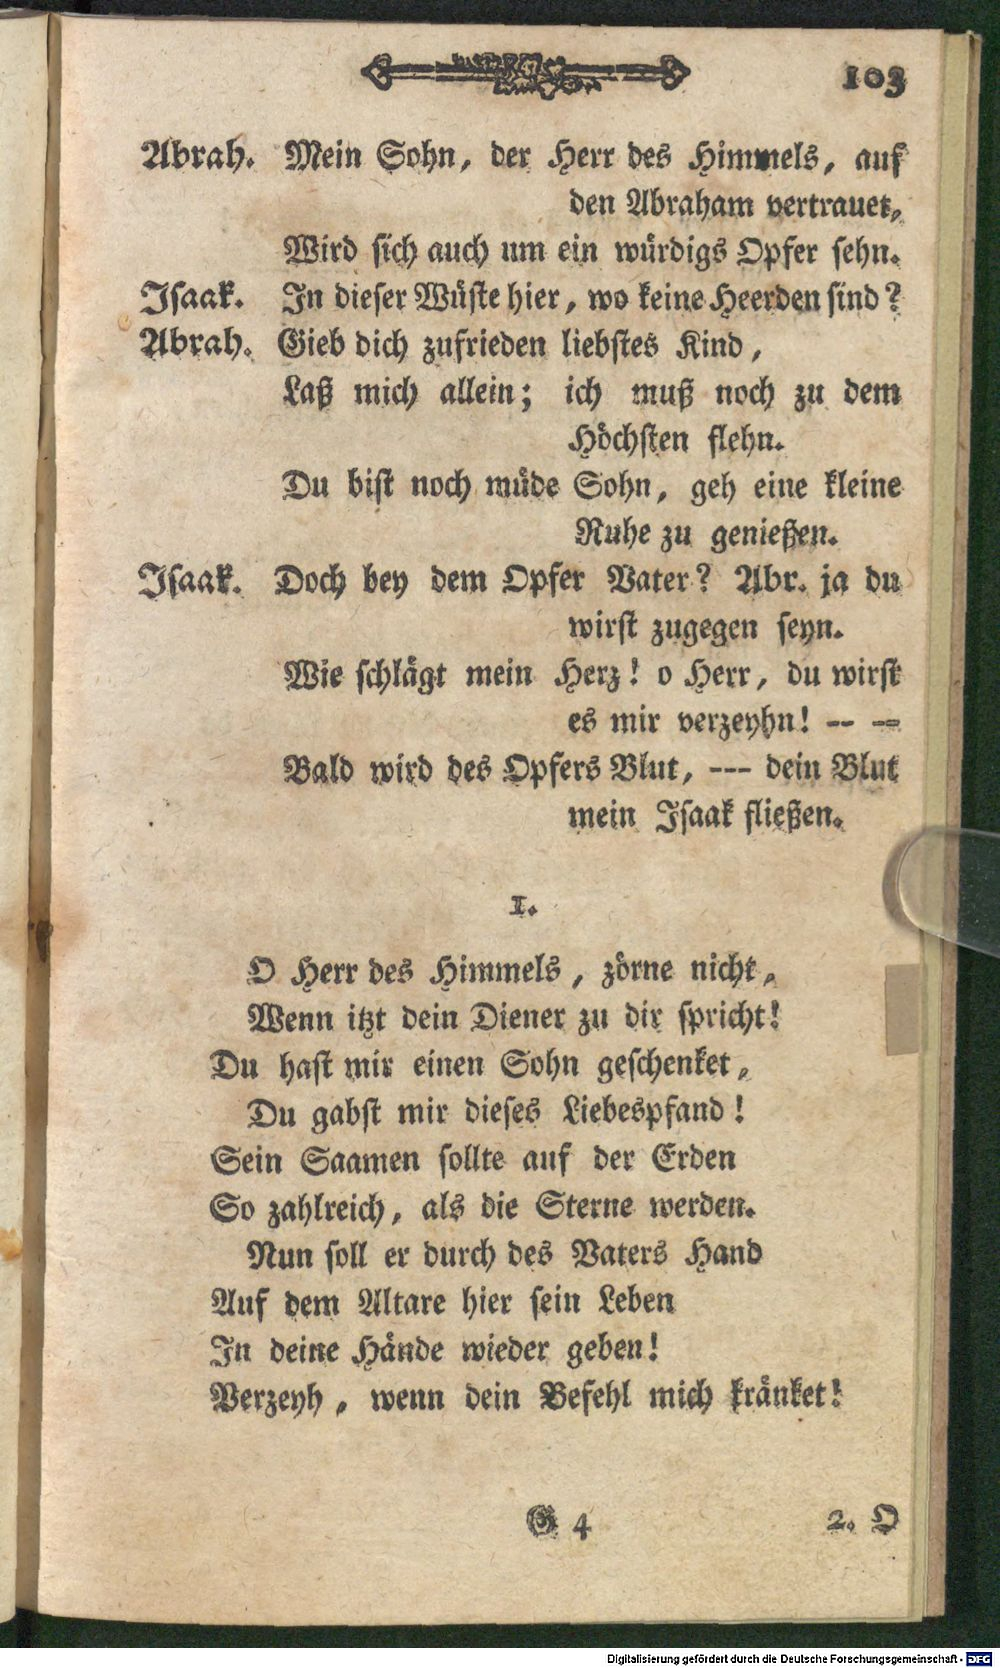 103
Abrah. Mein Sohn, der Herr des Himmels, auf
den Abraham vertrauet,
Wird sich auch um ein würdigs Opfer sehn.
Isaak. In dieser Wüste hier, wo keine Heerden sind?
Abrah. Gieb dich zufrieden liebstes Kind,
Laß mich allein; ich muß noch zu dem
Höchsten flehn.
Du bist noch müde Sohn, geh eine kleine
Ruhe zu genießen.
Isaak. Doch bey dem Opfer Vater? Abr. ja du
wirst zugegen seyn.
Wie schlägt mein Herz! o Herr, du wirst
es mir verzeyhn! -- --
Bald wird des Opfers Blut, --- dein Blut
mein Isaak fließen.
1.
O Herr des Himmels, zörne nicht,
Wenn itzt dein Diener zu dir spricht!
Du hast mir einen Sohn geschenket,
Du gabst mir dieses Liebespfand!
Sein Saamen sollte auf der Erden
So zahlreich, als die Sterne werden.
Nun soll er durch des Vaters Hand
Auf dem Altare hier sein Leben
In deine Hände wieder geben!
Verzeyh, wenn dein Befehl mich kränket!
G 4 2. O
Digitalisierung gefördert durch die Deutsche Forschungsgemeinschaft - DFG